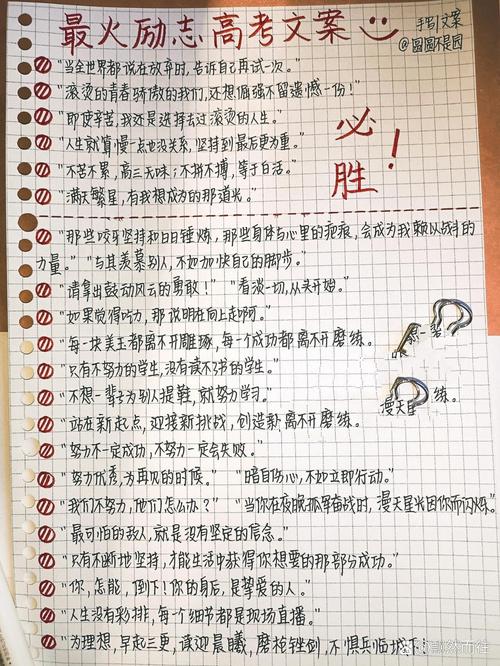 最火励志高考文案
手写文案
@圆圆不是园
"当全世界都说在放弃时,告诉自己再试一次。"
"滚烫的青春骄傲的我们,还想倔强不留遗憾一份!"
"即使辛苦,我还是选择去过滚烫的人生。"
"人生就算慢一点也没关系,坚持到最后更为重。"
"不苦不累,高三无味;不拼不搏,等于白活。"
"满天繁星,有我想成为的那道光。"
必胜!
"那些咬牙坚持和日日锤炼,那些身体与心里的疤痕,会成为我赖以战斗的
力量。" "与其羡慕别人,不如加快自己的脚步。"
"请拿出鼓动风云的勇敢!" "看淡一切,从头开始。"
"如果觉得吃力,那说明在向上走啊。"
"每一块美玉都离不开雕琢,每一个成功都离不开磨练。
"只有不努力的学生,没有读不书的学生。"
"不想一辈子为别人提鞋,就努力学习。"
漫天星
练。
"站在新起点,迎接新挑战,创造新离不开磨练。
"努力不一定成功,不努力一定会失败。"
"努力优秀,为再见的时候。" "暗自伤心,不如立即行动。"
"我们不努力,他们怎么办?" "当你在夜晚孤军奋战时,漫天星光因你而闪烁。"
"最可怕的敌人,就是没有坚定的信念。"
"只有不断地坚持,才能生活中获得你想要的那部分成功。"
"你,怎能,倒下!你的身后,是挚爱的人。"
"人生没有彩排,每一个细节都是现场直播。"
"为理想,早起三更,读迎晨曦,磨枪锉剑,不惧兵临城下